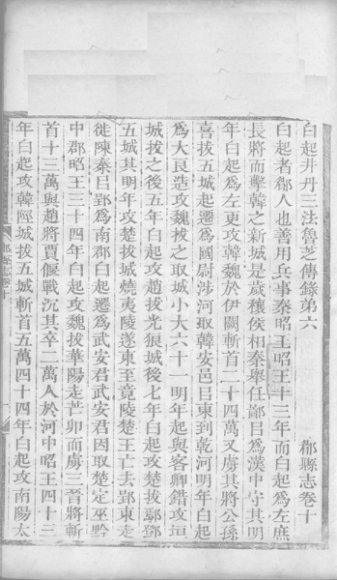 白起井丹三法魯芝傳錄第六　郿縣志卷十
白起者郿人也善用兵事秦昭王昭王十三年而白起爲左庶
長將而擊韓之新城是歲穰侯相秦舉任鄙㠯爲漢中守其明
年白起爲左更攻韓魏於伊闕斬首二十四萬又虜其將公孫
喜拔五城起遷爲國尉涉河取韓安邑㠯東到乾河明年白起
爲大良造攻魏拔之取城小大六十一明年起與客卿錯攻垣
城拔之後五年白起攻趙拔光狼城後七年白起攻楚拔鄢鄧
五城其明年攻楚拔郢燒夷陵遂東至竟陵楚王亡去郢東走
徙陳秦㠯郢爲南郡白起遷爲武安君武安君因取楚定巫黔
中郡昭王三十四年白起攻魏拔華陽走芒卯而虜三晉將斬
首十三萬與趙將賈偃戰沉其卒二萬人於河中昭王四十三
年白起攻韓陘城拔五城斬首五萬四十四年白起攻南陽太